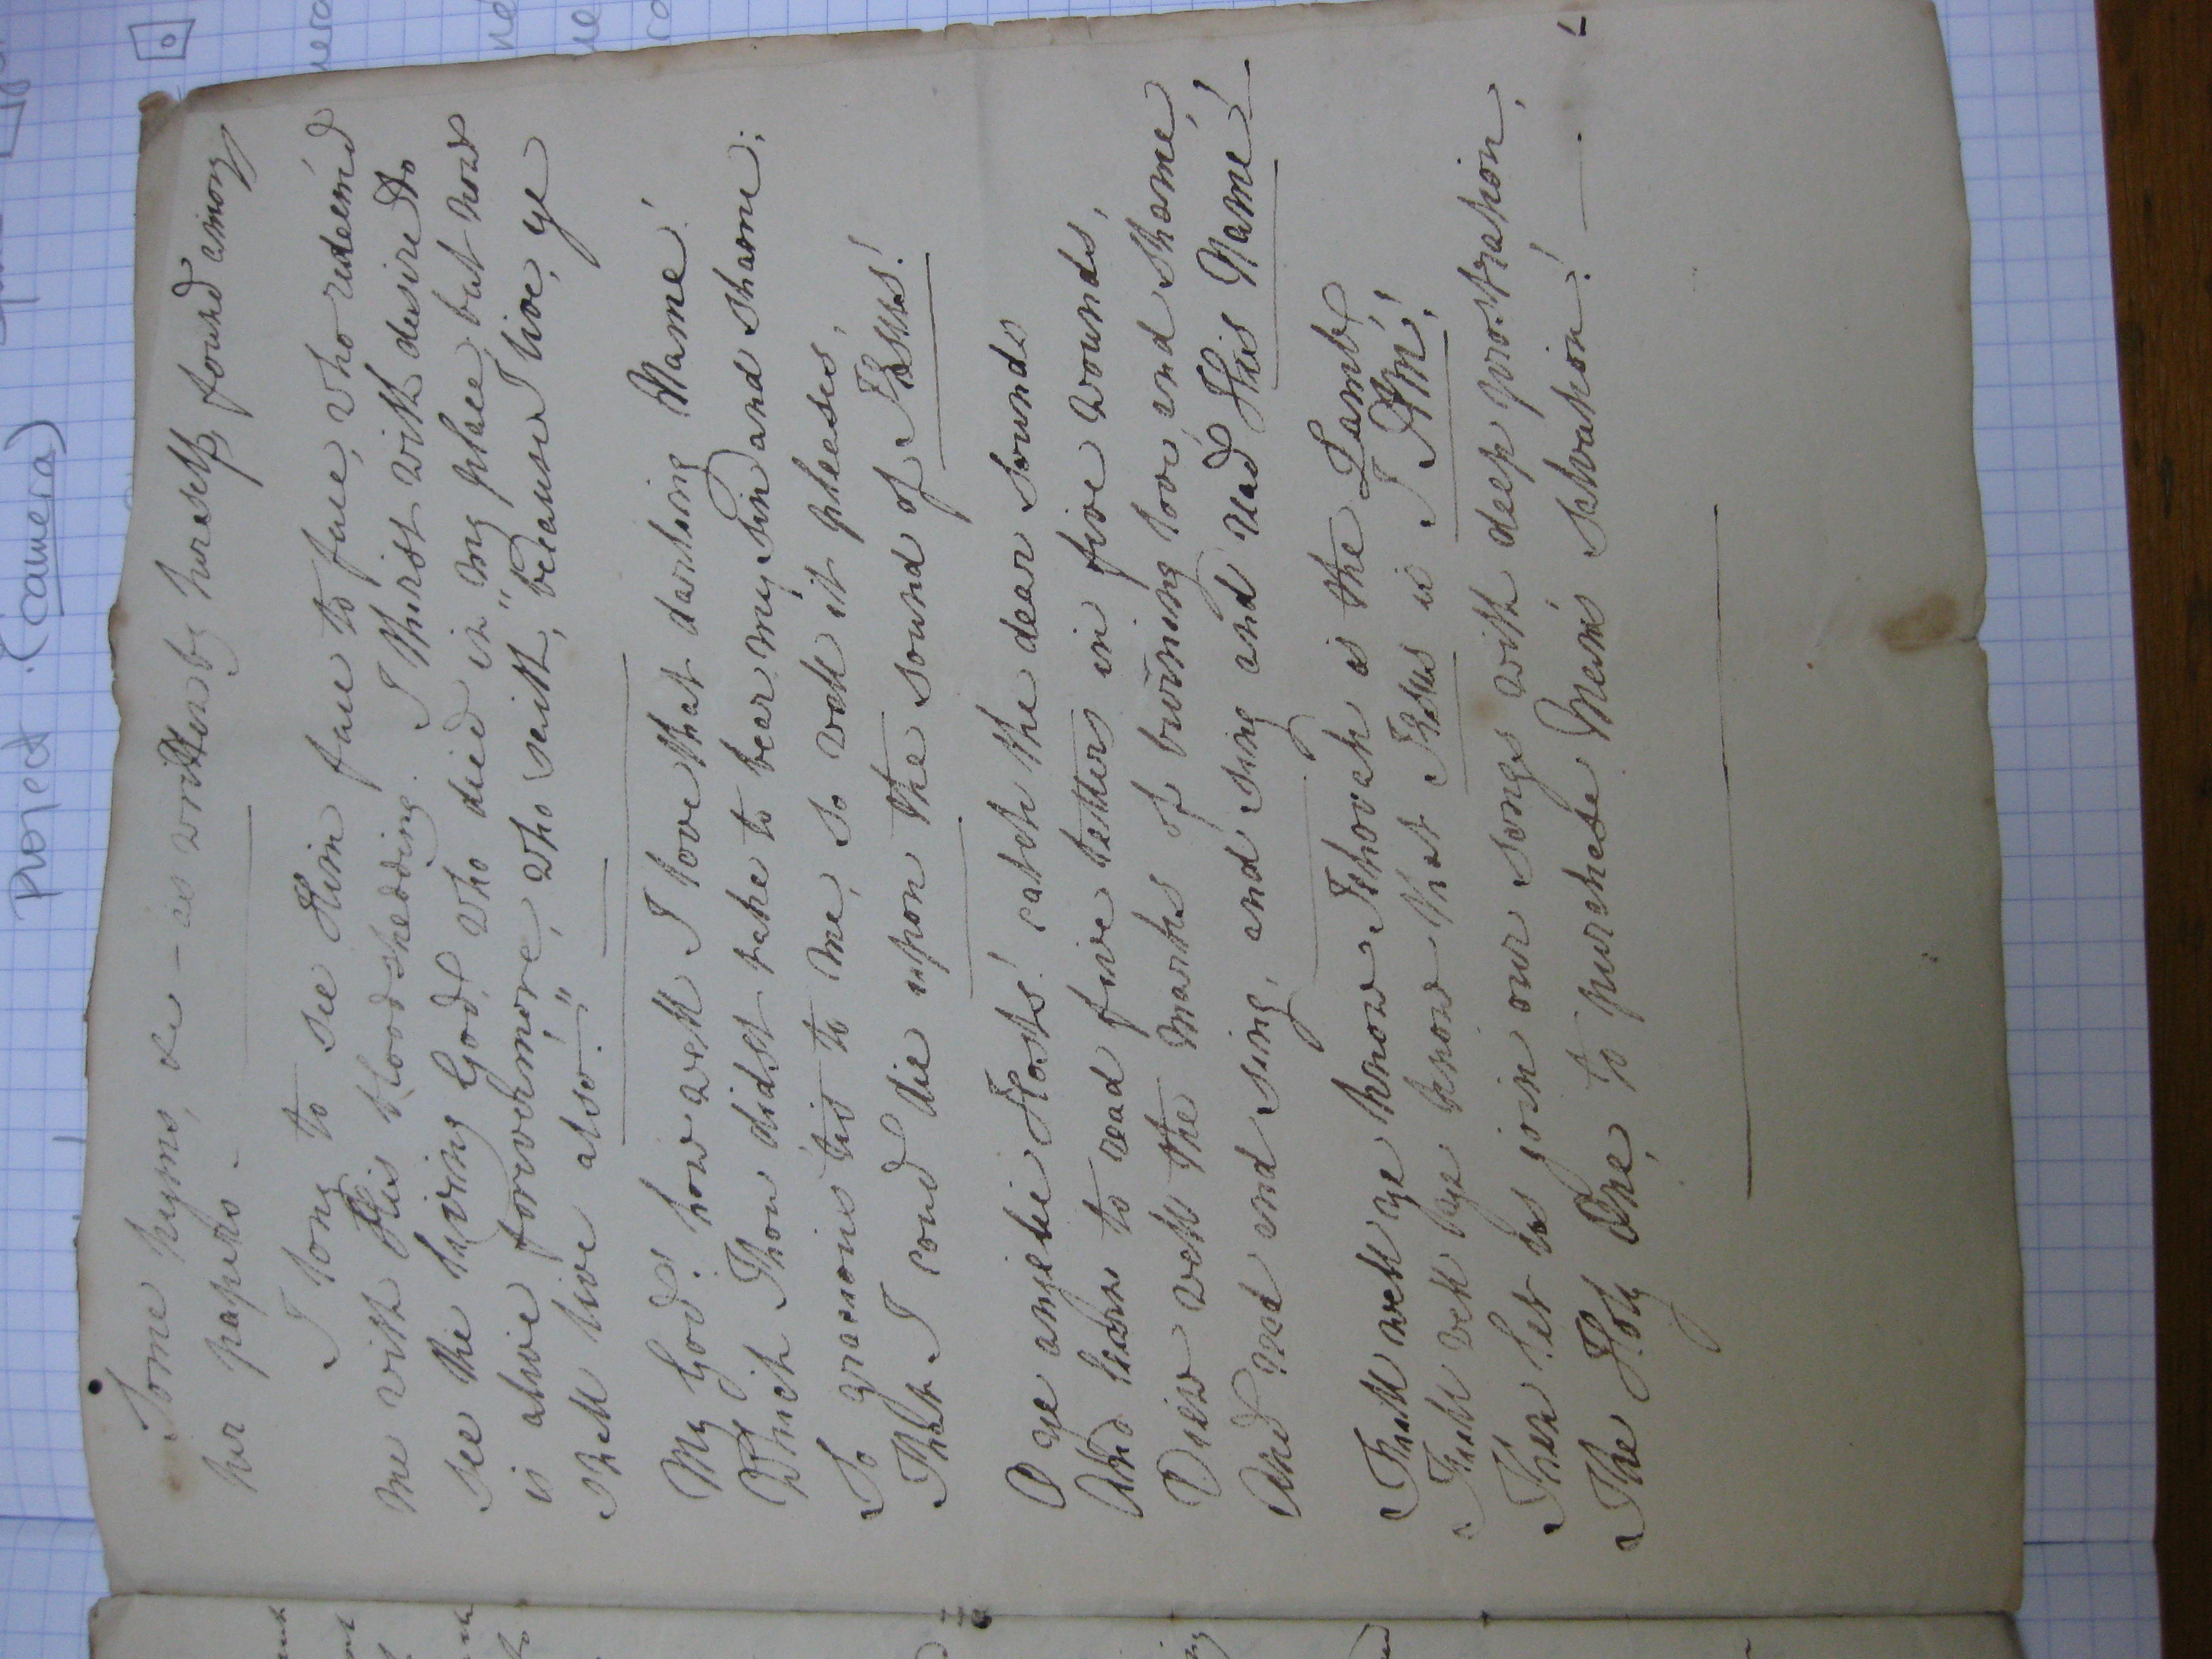 Project (camera)
Some hyms, &c - as written by herself, found among
her papers -
I long to see Him face to face, who redeem'd
me with His bloodshedding. I thirst with desire to
see the living God! who died in my place, but now
is alive forevermore, who saith, "because I live, ye
shall live also!"
My God! how well I love that darling Name!
Which Thou didst take to bear my sin and shame;
So gracious 'tis to me, so well it pleases,
That I coud die upon the sound of Jesus!
O ye anjelic Hosts! catch the dear sounds
And learn to read five letters in five wounds,
View well the marks of burning love, and shame,
And read and sing, and sing and read His Name!
Full well ye know Jehovah is the Lamb,
Full well ye know that Jesus is I AM!
Then let us join our songs with deep prostration,
The Holy One, to purchase Man's salvation!